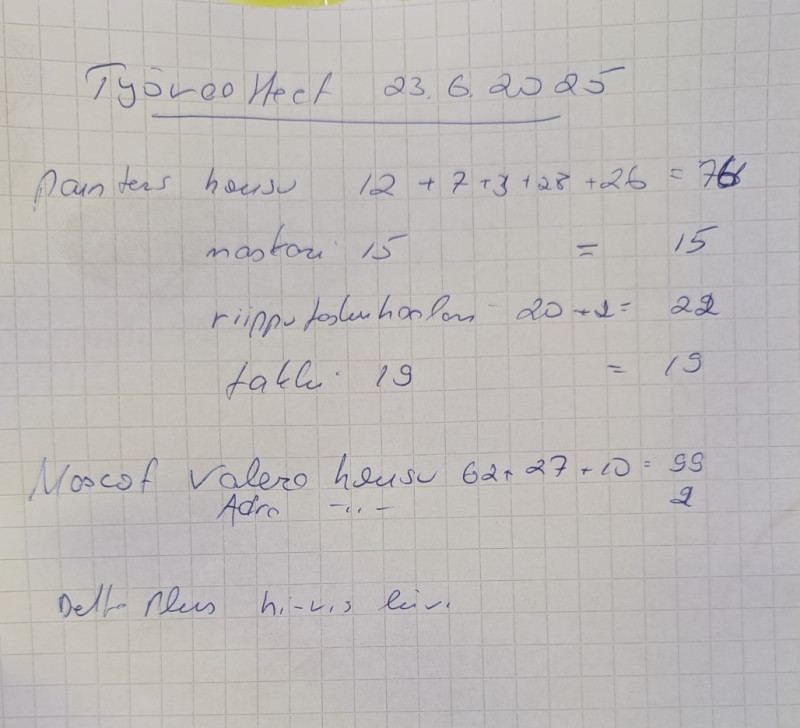 Työvaatteet 23.6.2025
Painters housu 12 + 7 + 3 + 28 + 26 = 76
15 = 15
riipputaskuhousu 20 + 2 = 22
takki 19 = 19
Mascot Valero housu 62 + 27 + 10 = 99
Adra -"- 2
Delta Plus hi-vis liivi